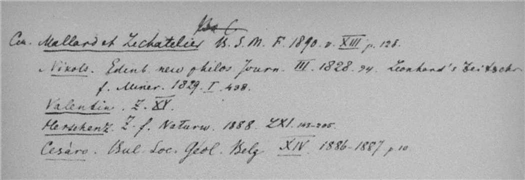 Cer. Mallard et Lechatelier B. S. M. F. 1890. v. XIII p. 123.
Nikols. Edinb. new philos. Journ. III. 1828. 94. Leonhard's Zeitschr.
f. Miner. 1829. I. 408.
Valentin. Z. XV.
Herschenz. Z. f. Naturw. 1888. LXI.
Cesáro. Bul. Soc. Geol. Belg XIV. 1886-1887 p. 10